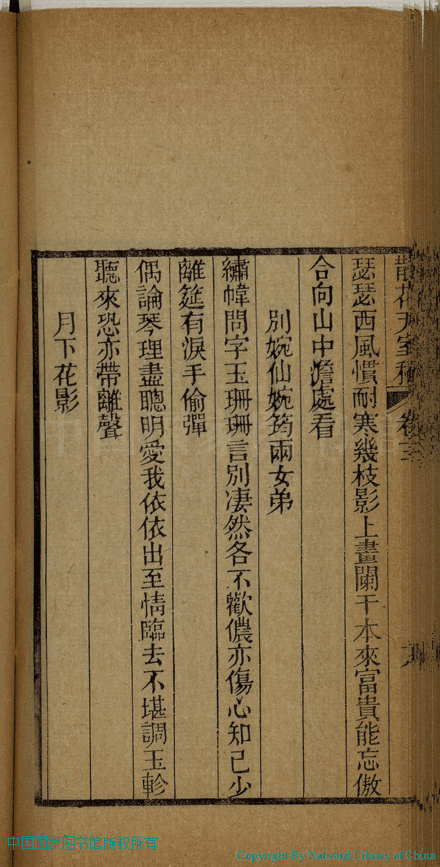 散花天室稿 卷三
瑟瑟西風慣耐寒幾枝影上畫闌干本來富貴能忘傲
合向山中澹處看
別婉仙婉筠兩女弟
繡幃問字玉珊珊言別淒然各不歡儂亦傷心知己少
離筵有淚手偷彈
偶論琴理盡聰明愛我依依出至情臨去不堪調玉軫
聽來恐亦帶離聲
月下花影
中国国家图书馆版权所有
Copyright By National Library of China